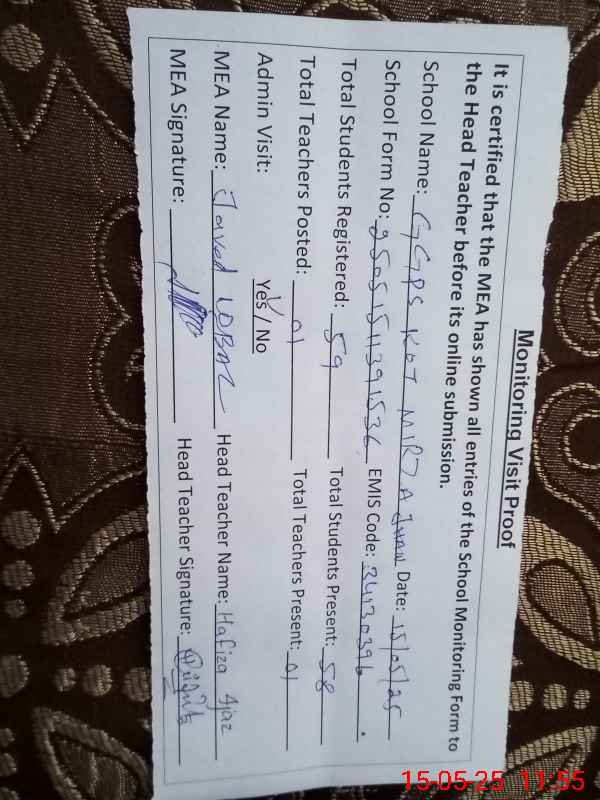 Monitoring Visit Proof
It is certified that the MEA has shown all entries of the School Monitoring Form to
the Head Teacher before its online submission.
School Name: GGPS KOT MIRJA JHAN Date: 15/05/25
School Form No: 25051511391536 EMIS Code: 34130396
Total Students Registered: 59 Total Students Present: 58
Total Teachers Posted: 01 Total Teachers Present: 01
Admin Visit: Yes / No
MEA Name: Javed IQBAL Head Teacher Name: Hafiza Ajaz
MEA Signature: Head Teacher Signature:
15-05-25 11:55